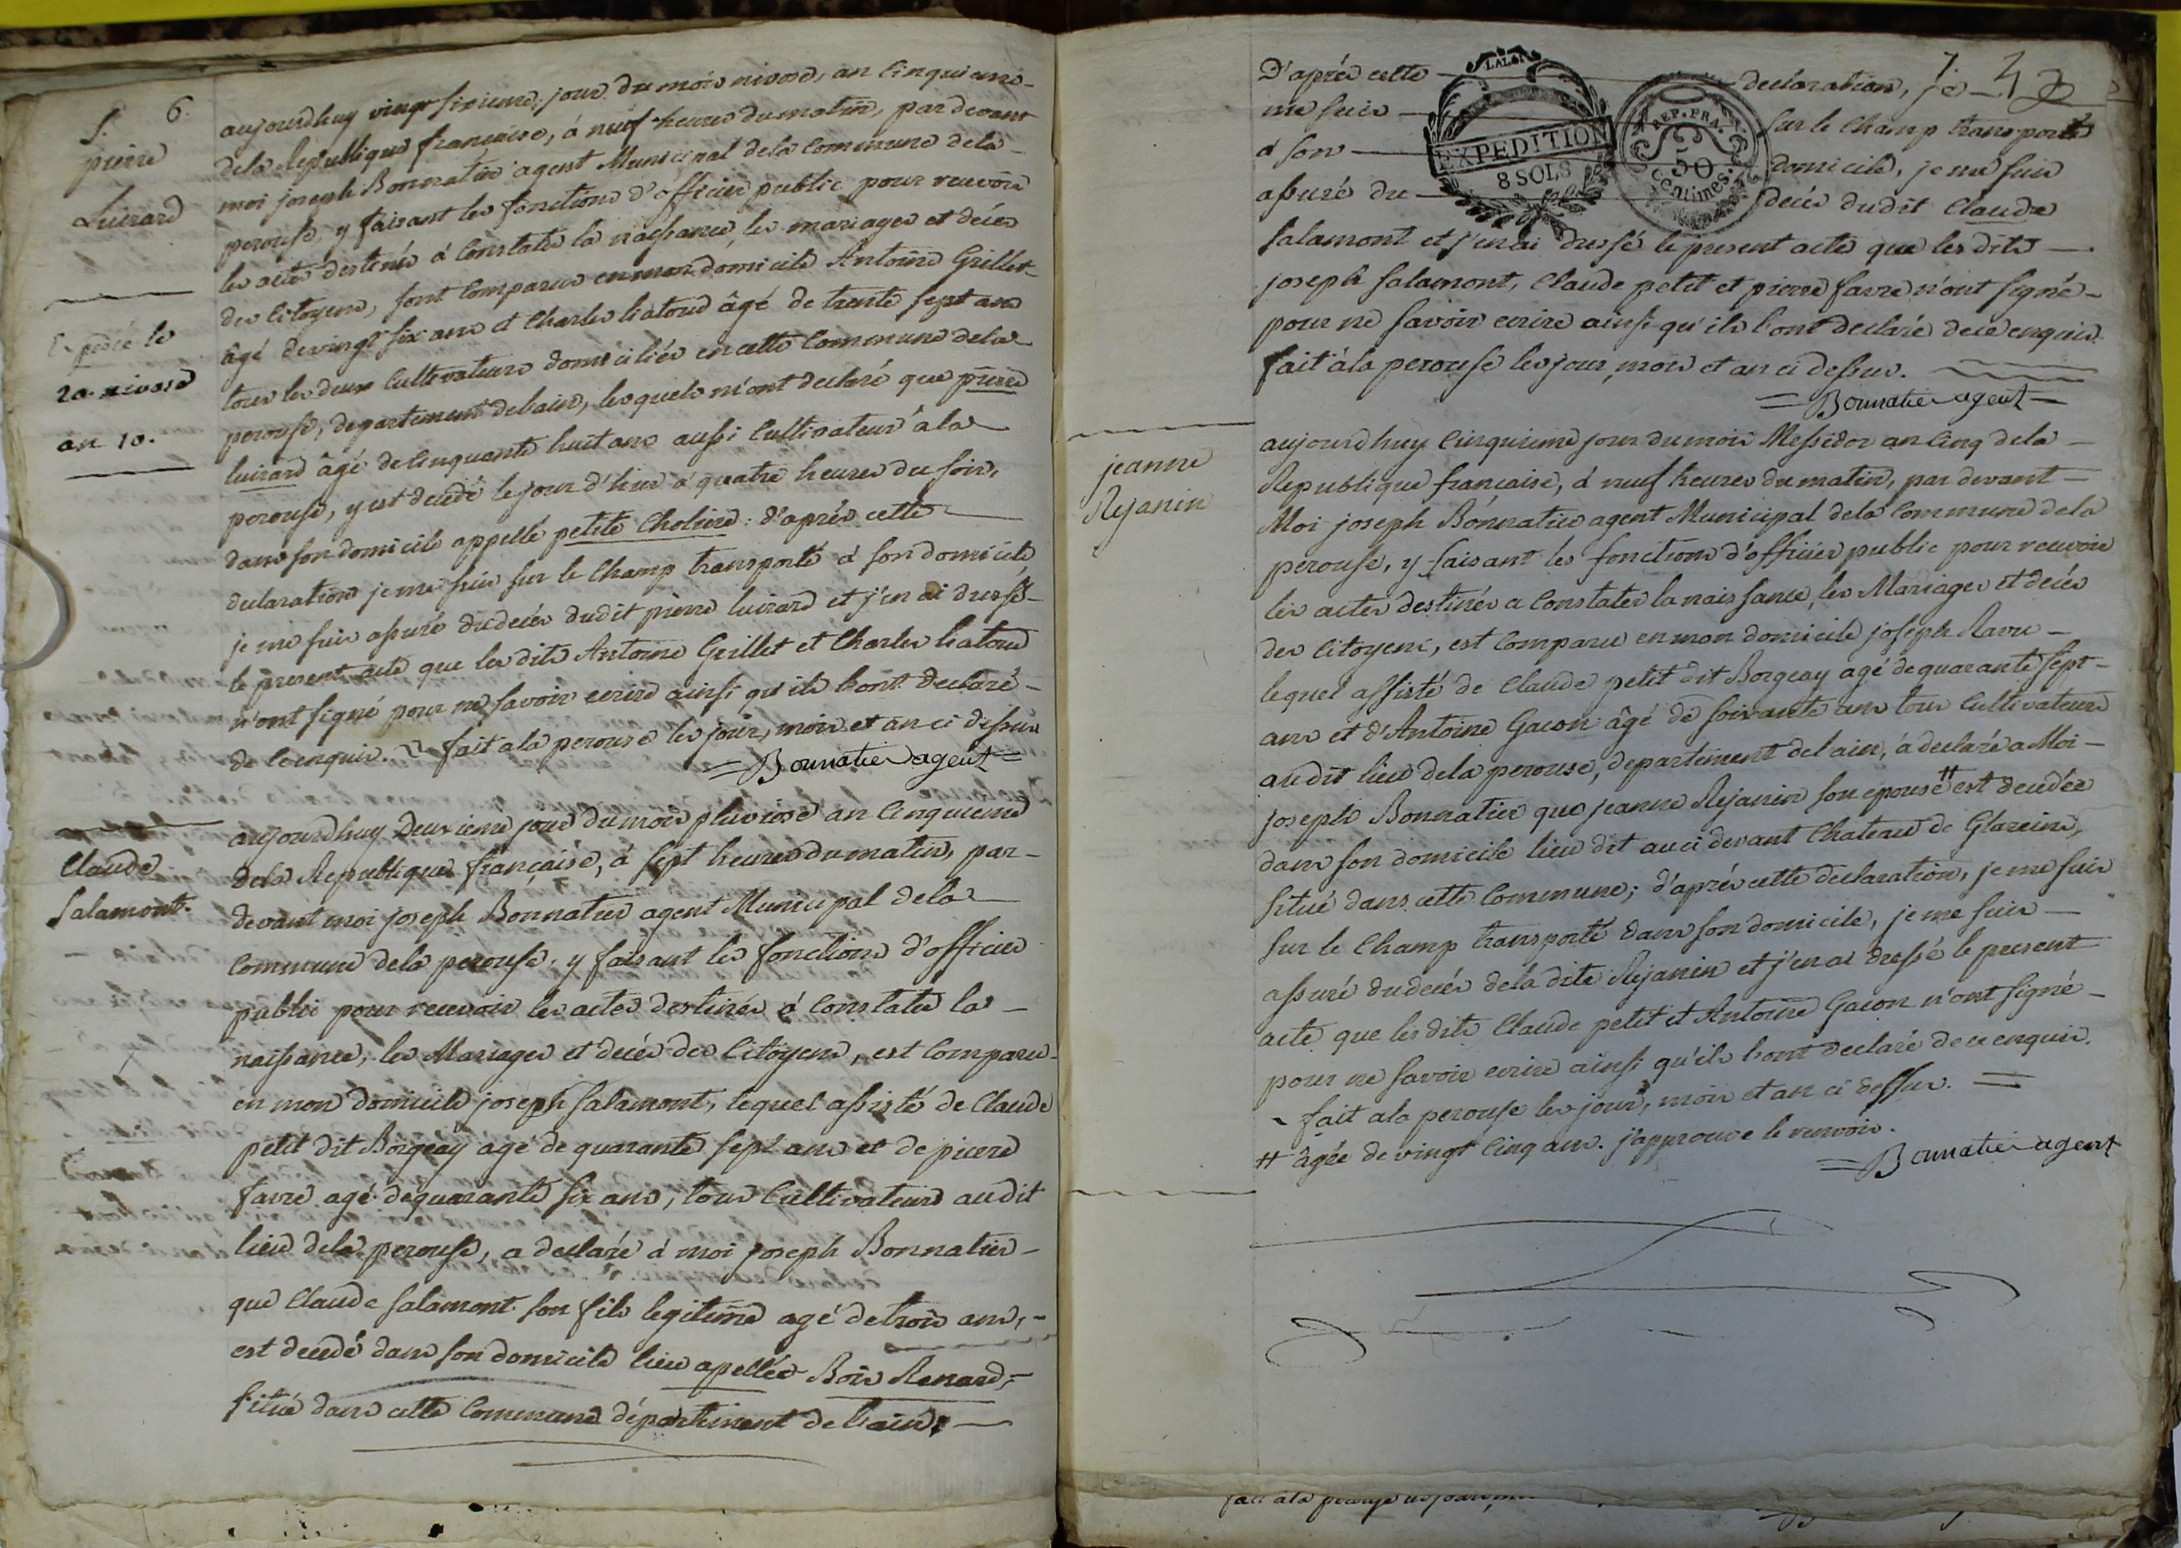 6.
pierre
Luirard
Expedié le
20. nivose
an 10.
aujourdhuy vingt sixieme, jour du mois nivose, an cinquieme
dela Republique française, à neuf heures du matin, par devant
moi joseph Bonnatier agent Municipal dela Commune dela
perouse, y faisant les fonctions d'officier public pour recevoir
les actes destinés à Constater la naissance, les mariages et decès
des Citoyens, sont Comparus en mon domicile Antoine Grillet
âgé de vingt six ans et Charles liatoud âgé de trente sept ans
tous les deux Cultivateurs domiciliés en cette Commune dela
perouse, departement delain, lesquels m'ont declaré que pierre
luirard âgé de Cinquante huit ans aussi Cultivateur à la
perouse, y est decedé le jour d'hier à quatre heures du soir,
dans son domicile appellé petite Choliere: d'après cette
declaration je me suis sur le Champ transporté à son domicile
je me suis assuré du decès dudit pierre luirard et j'en ai dressé
le present acte que les dits Antoine Grillet et Charles liatoud
n'ont signé pour ne savoir ecrire ainsi qu'ils l'ont declaré
de ce enquis. fait à la perouse les jour, mois et an ci dessus
= Bonnatier agent =
Claude
Salamont.
aujourdhuy deuxieme jour du mois pluviose an Cinquieme
dela Republique française, à sept heures du matin, par-
devant moi joseph Bonnatier agent Municipal dela
Commune dela perouse, y faisant les fonctions d'officier
public pour recevoir les actes destinés à Constater la
naissance, les Mariages et decès des Citoyens, est Comparu
en mon domicile joseph Salamont, lequel assisté de Claude
petit dit Borgeay agé de quarante sept ans et de pierre
favre agé de quarante six ans, tous Cultivateurs audit
lieu dela perouse, a declaré à moi joseph Bonnatier
que Claude Salamont son fils legitime agé de trois ans,
est decedé dans son domicile lieu apellée Bois Renard,
situé dans cette Commune département de l'ain,
7
LALOI
EXPEDITION
8 SOLS
REP. FRA.
50
Centimes.
D'après cette declaration, je
me suis sur le Champ transporté
à son domicile, je me suis
assuré du decès dudit Claude
Salamont et j'en ai dressé le present acte que les dits
joseph Salamont, Claude petit et pierre favre n'ont signé
pour ne savoir ecrire ainsi qu'ils l'ont declaré de ce enquis
fait à la perouse les jour, mois et an ci dessus.
= Bonnatier agent =
jeanne
Rejanin
aujourdhuy Cinquieme jour du mois Messidor an Cinq dela
Republique française, à neuf heures du matin, par devant
Moi joseph Bonnatier agent Municipal dela Commune dela
perouse, y faisant les fonctions d'officier public pour recevoir
les actes destinés a Constater la naissance, les Mariages et decès
des Citoyens, est Comparu en mon domicile joseph Ravu
lequel assisté de Claude petit dit Borgeay agé de quarante sept
ans et d'Antoine Gacon âgé de soixante ans tous Cultivateurs
audit lieu dela perouse, departement delain, a declaré a Moi
joseph Bonnatier que jeanne Rejanin son epouse # est decedée
dans son domicile lieu dit au ci devant Chateau de Glareins,
situé dans cette Commune; d'après cette declaration, je me suis
sur le Champ transporté dans son domicile, je me suis
assuré du decès dela dite Rejanin et j'en ai dressé le present
acte que les dits Claude petit et Antoine Gacon n'ont signé
pour ne savoir ecrire ainsi qu'ils l'ont declaré de ce enquis.
fait a la perouse les jour, mois et an ci dessus. =
# âgée de vingt Cinq ans. j'approuve le renvoi.
= Bonnatier agent
fait à la perouse les jour,